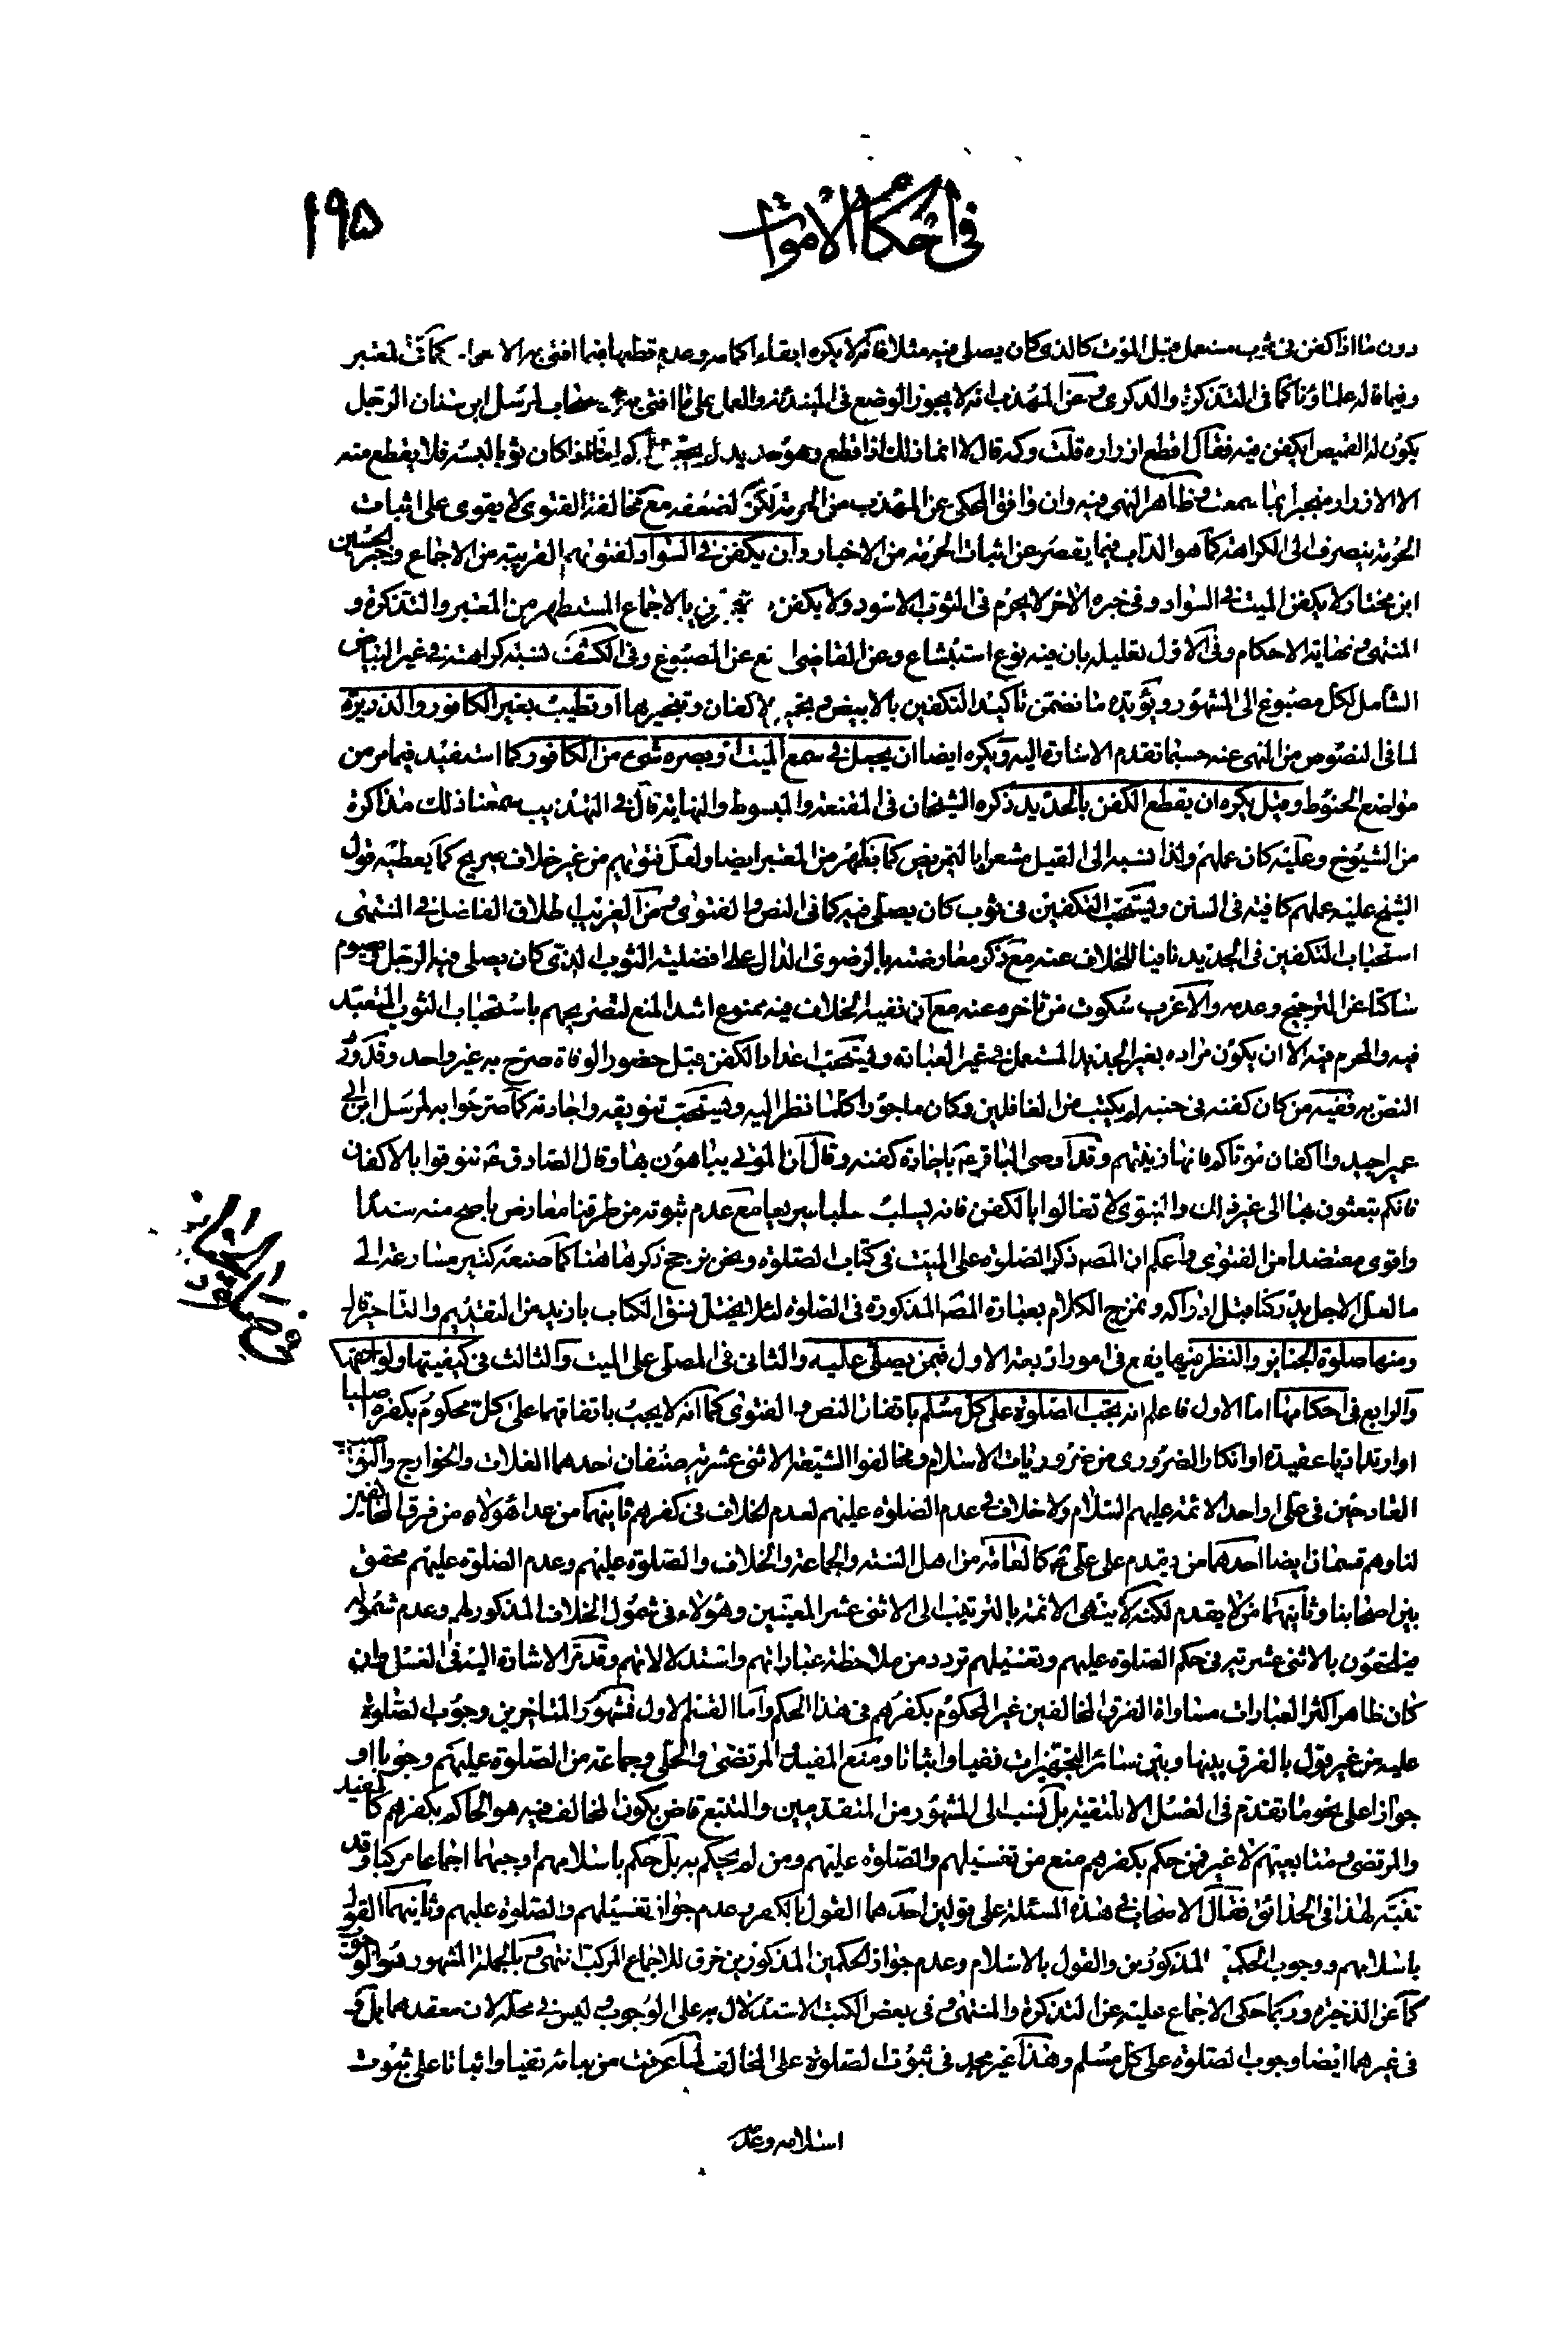 في احكام الاموات
١٩٥
دون ما اذا كفن في ثوب مستعمل قبل الموت كالذي كان يصلي فيه مثلا فانه لا يكره ابقاء اكمامه وعدم قطعها فيما افتى به الاصحاب كما في المعتبر
وفيما قاله علماؤنا كما في التذكرة والذكرى وعن المهذب انه لا يجوز الوضع في المبتدئة والعمل على ما افتى به الاصحاب لمرسل ابن سنان الرجل
يكون له القميص ايكفن فيه فقال اقطع ازراره قلت وكمه قال لا انما ذلك اذا قطع وهو جديد لم يجعل له كما فاما اذا كان ثوبا لبيسا فلا يقطع منه
الا الازرار منجبرا بما سمعت وظاهر النهي فيه وان وافق المحكي عن المهذب من الحرمة لكن لضعفه مع مخالفته الفتوى لا يقوى على اثبات
الحرمة ينصرف الى الكراهة كما هو الداب فيما يقصر عن اثبات الحرمة من الاخبار وان يكفن في السواد لفتوىهم القريبة من الاجماع وخبر الحسين
ابن مختار لا يكفن الميت في السواد وفي خبره الاخر لا يحرم في الثوب الاسود ولا يكفن به منجبرين بالاجماع المستظهر من المعتبر والتذكرة و
المنتهى ونهاية الاحكام وفي الاول تعليله بان فيه نوع استبشاع وعن القاضي المنع عن المصبوغ وفي الكشف نسبة كراهته في غير البياض
الشامل لكل مصبوغ الى المشهور ويؤيده ما تضمن تاكيد التكفين بالابيض وتجمير الاكفان وتبخيرها او تطييب بغير الكافور والذريرة
لما في النصوص من النهي عنه حسبما تقدم الاشارة اليه ويكره ايضا ان يجعل في سمع الميت او بصره شيء من الكافور كما استفيد فيما مر من
مواضع الحنوط وقيل يكره ان يقطع الكفن بالحديد ذكره الشيخان في المقنعة والمبسوط والنهاية قال في التهذيب سمعنا ذلك مذاكرة
من الشيوخ وعليه كان عملهم ولذا نسبه الى القيل مشعرا بالتمريض كما يظهر من المعتبر ايضا ولعل فتوىهم من غير خلاف صريح كما يعطيه قول
الشيخ عليه عملهم كافية في السنن ويستحب التكفين في ثوب كان يصلي فيه كما في النص والفتوى ومن الغريب اطلاق الفاضل في المنتهى
استحباب التكفين في الجديد نافيا للخلاف عنه مع ذكر معارضته بالرضوي الدال على افضلية الثوب الذي كان يصلي فيه الرجل ويصوم
ساكتا عن الترجيح وعدمه والاغرب سكوت من تاخره عنه مع ان نفيه الخلاف فيه ممنوع اشد المنع لتصريحهم باستحباب الثوب المتعبد
فيه والمحرم فيه الا ان يكون مراده بغير الجديد المستعمل في غير العبادة ويستحب اعداد الكفن قبل حضور الوفاة صرح به غير واحد وقد ورد في
النص به ففيه من كان كفنه في حنبه لم يكتب من الغافلين وكان ماجورا كلما نظر اليه ويستحب تنويقه واجادته كما صرحوا به لمرسل ابن ابي
عمير اجيدوا اكفان موتاكم فانها زينتهم وقد اوصى الباقر ع باجادة كفنه وقال ان الموتى يتباهون بها وقال الصادق ع تنوقوا بالاكفان
فانكم تبعثون بها الى غير ذلك والنبوي لا تغالوا بالكفن فانه يسلب سلبا سريعا مع عدم ثبوته من طرقنا معارض باصح منه سندا
واقوى معتضدا من الفتوى واعلم ان المصم ذكر الصلوة على الميت في كتاب الصلوة ونحن نرجح ذكرها هنا كما صنعه كثير مسارعة الى
ما لعل الاجل يدركنا قبل ادراكه ونمزج الكلام بعبارة المصم المذكورة في الصلوة لئلا يختل نسق الكتاب بازيد من التقديم والتاخير قال
ومنها صلوة الجنايز والنظر فيها يقع في امور اربعة الاول فيمن يصلى عليه والثاني في المصلي على الميت والثالث في كيفيتها ولواحقها
والرابع في احكامها اما الاول فاعلم انه يجب الصلوة على كل مسلم باتفاق النص والفتوى كما انه لا يجب باتفاقهما على كل محكوم بكفره اصليا
او ارتداديا عقيدة او انكار الضروري من ضروريات الاسلام ومخالفوا الشيعة الاثنى عشرية صنفان احدهما الغلات والخوارج والنواصب
القادحين في علي او احد الائمة عليهم السلام ولا خلاف في عدم الصلوة عليهم لعدم الخلاف في كفرهم ثانيهما من عدا هؤلاء من فرق المخالفين
لنا وهم قسمان ايضا احدهما من يقدم على علي ع كالعامة من اهل السنة والجماعة والخلاف والصلوة عليهم وعدم الصلوة عليهم محقق
بين اصحابنا وثانيهما من لا يقدم لكنه لا ينتهي الائمة بالترتيب الى الاثنى عشر المعينين وهؤلاء في شمول الخلاف المذكور لهم وعدم شموله
فيلحقون بالاثنى عشرية في حكم الصلوة عليهم وتغسيلهم تردد من ملاحظة عباراتهم واستدلالاتهم وقد مر الاشارة اليه في الغسل وان
كان ظاهر اكثر العبارات مساواة الفرق المخالفين غير المحكوم بكفرهم في هذا الحكم واما القسم الاول فمشهور المتاخرين وجوب الصلوة
عليه من غير قول بالفرق بينها وبين سائر التجهيزات نفيا واثباتا ومنع المفيد والمرتضى والحلي وجماعة من الصلوة عليهم وجوبا او
جوازا على نحو ما تقدم في الغسل الا لتقية بل نسب الى المشهور من المتقدمين والتتبع قاض بكون المخالف فيه هو الحاكم بكفرهم كالمفيد
والمرتضى ومتابعيهم لا غير فمن حكم بكفرهم منع من تغسيلهم والصلوة عليهم ومن لم يحكم به بل حكم باسلامهم اوجبهما اجماعا مركبا وقد
تنبه لهذا في الحدائق فقال الاصحاب في هذه المسئلة على قولين احدهما القول بالكفر وعدم جواز تغسيلهم والصلوة عليهم وثانيهما القول
باسلامهم ووجوب الحكمين المذكورين والقول بالاسلام وعدم جواز الحكمين المذكورين خرق للاجماع المركب انتهى وبالجملة المشهور هو الوجوب
كما عن الذخيرة وربما حكى الاجماع عليه عن التذكرة والمنتهى وفي بعض الكتب الاستدلال به على الوجوب وليس في محله لان معقدهما بل و
في غيرهما ايضا وجوب الصلوة على كل مسلم وهذا غير مجد في ثبوت الصلوة على المخالف لما عرفت من بنائه نفيا واثباتا على ثبوت
اسلامه وعدمه